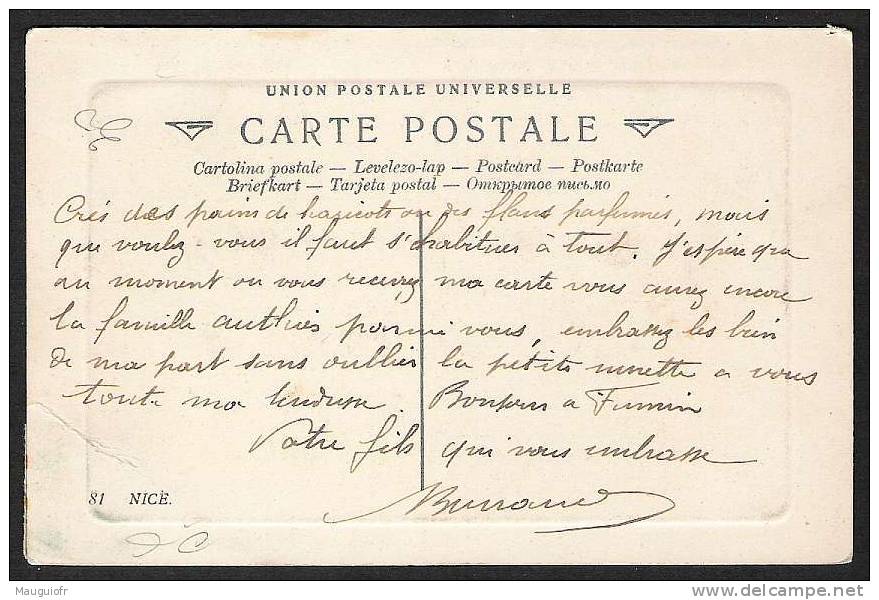 UNION POSTALE UNIVERSELLE
CARTE POSTALE
Cartolina postale — Levelezo-lap — Postcard — Postkarte
Briefkart — Tarjeta postal — Открытое письмо
des pains de haricots ou des flans parfumés, mais
que voulez-vous il faut s'habituer à tout. J'espère que
au moment ou vous recevez ma carte vous aurez encore
la famille parmi vous, embrassez les bien
de ma part sans oublier la petite ninette a vous
toute ma tendresse. Bonjour a Firmin
Votre fils qui vous embrasse
81 NICE.
Mauguiofr
www.delcampe.net